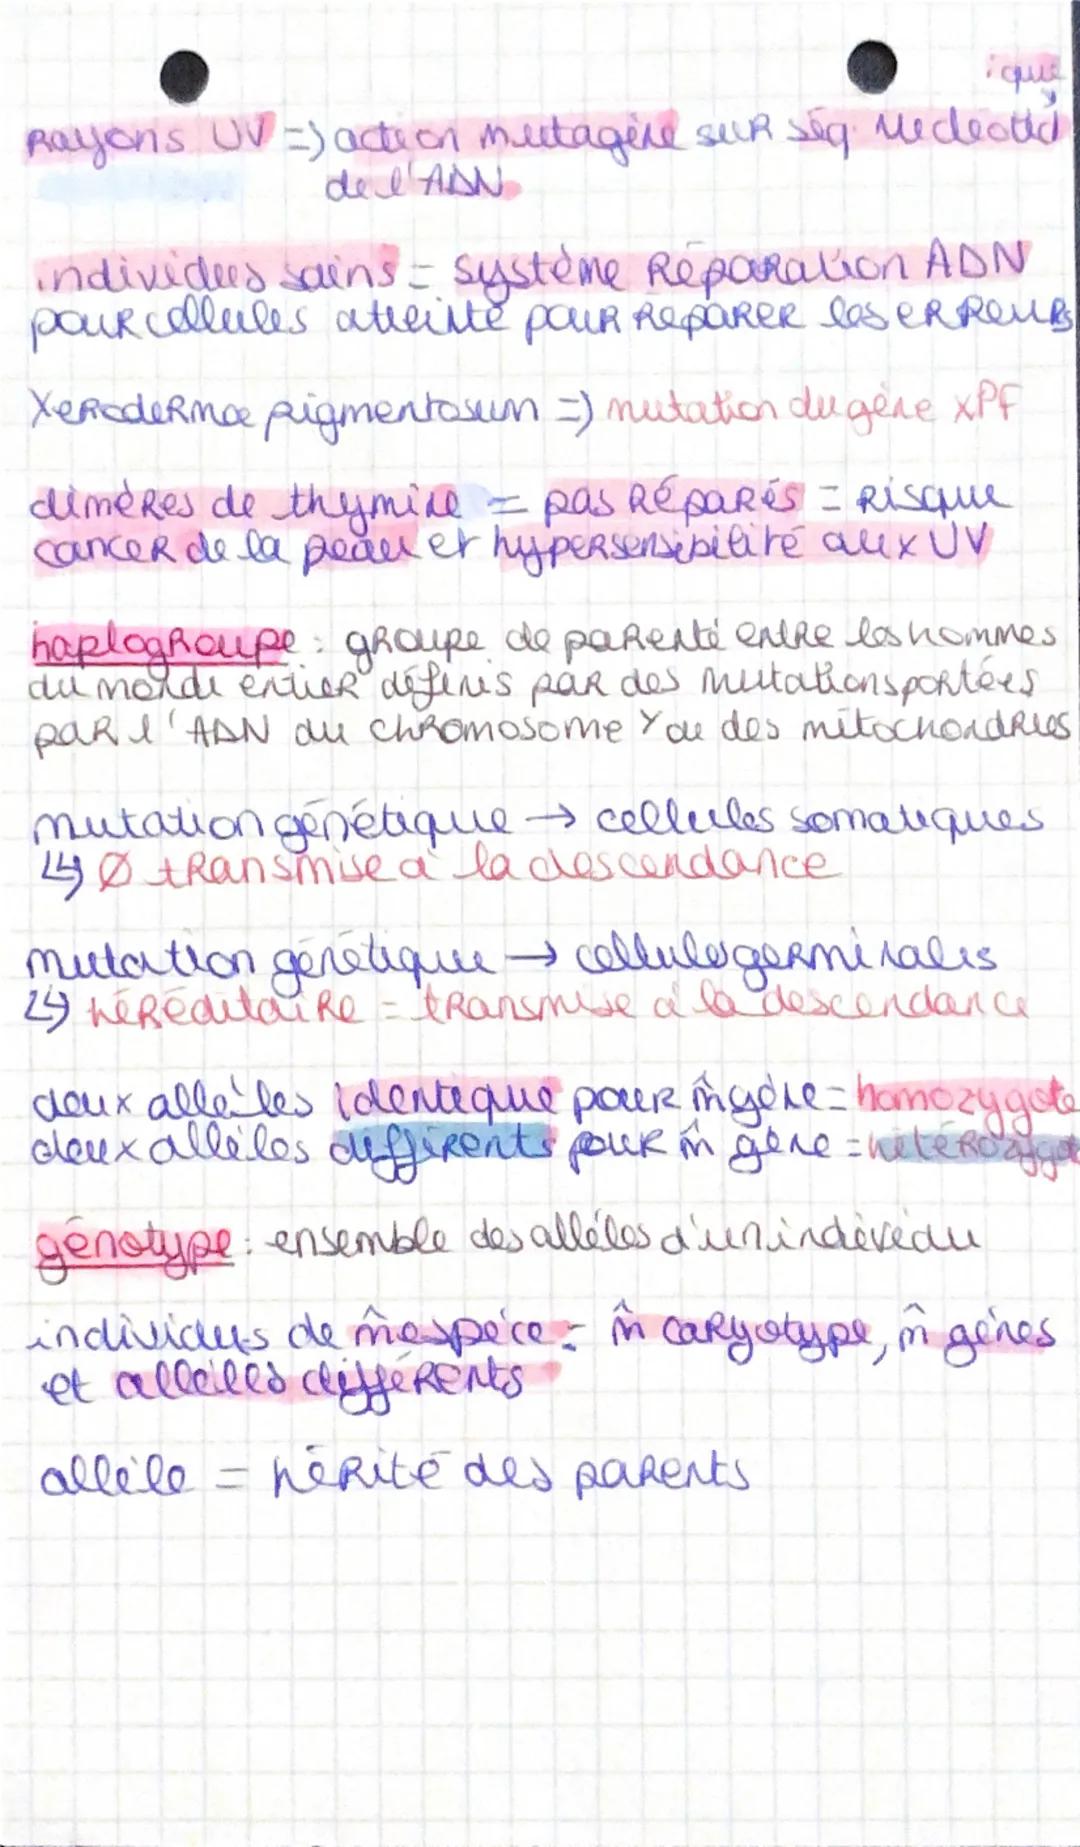 Rayons UV => action mutagène sur séq. nucléotidique
de l'ADN
individus sains = système Réparation ADN
pour cellules atteinte pour réparer les erreurs
Xeroderma pigmentosum => mutation du gène XPF
dimères de thymine = pas Réparés = Risque
cancer de la peau et hypersensibilité aux UV
haplogroupe : groupe de parenté entre les hommes
du monde entier définis par des mutations portées
par l'ADN du chromosome Y ou des mitochondries
mutation génétique → cellules somatiques
↳ Ø transmise à la descendance
mutation génétique → cellules germinales
↳ héréditaire = transmise à la descendance
deux allèles identique pour m̂ gène = homozygote
deux allèles différents pour m̂ gène = hétérozygote
génotype : ensemble des allèles d'un individu
individus de m̂ espèce = m̂ caryotype, m̂ gènes
et allèles différents
allèle = hérité des parents